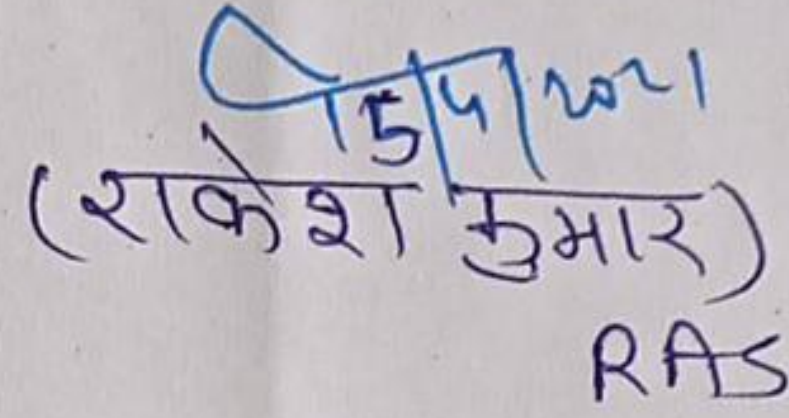 15/4/2021
(राकेश कुमार)
RAS